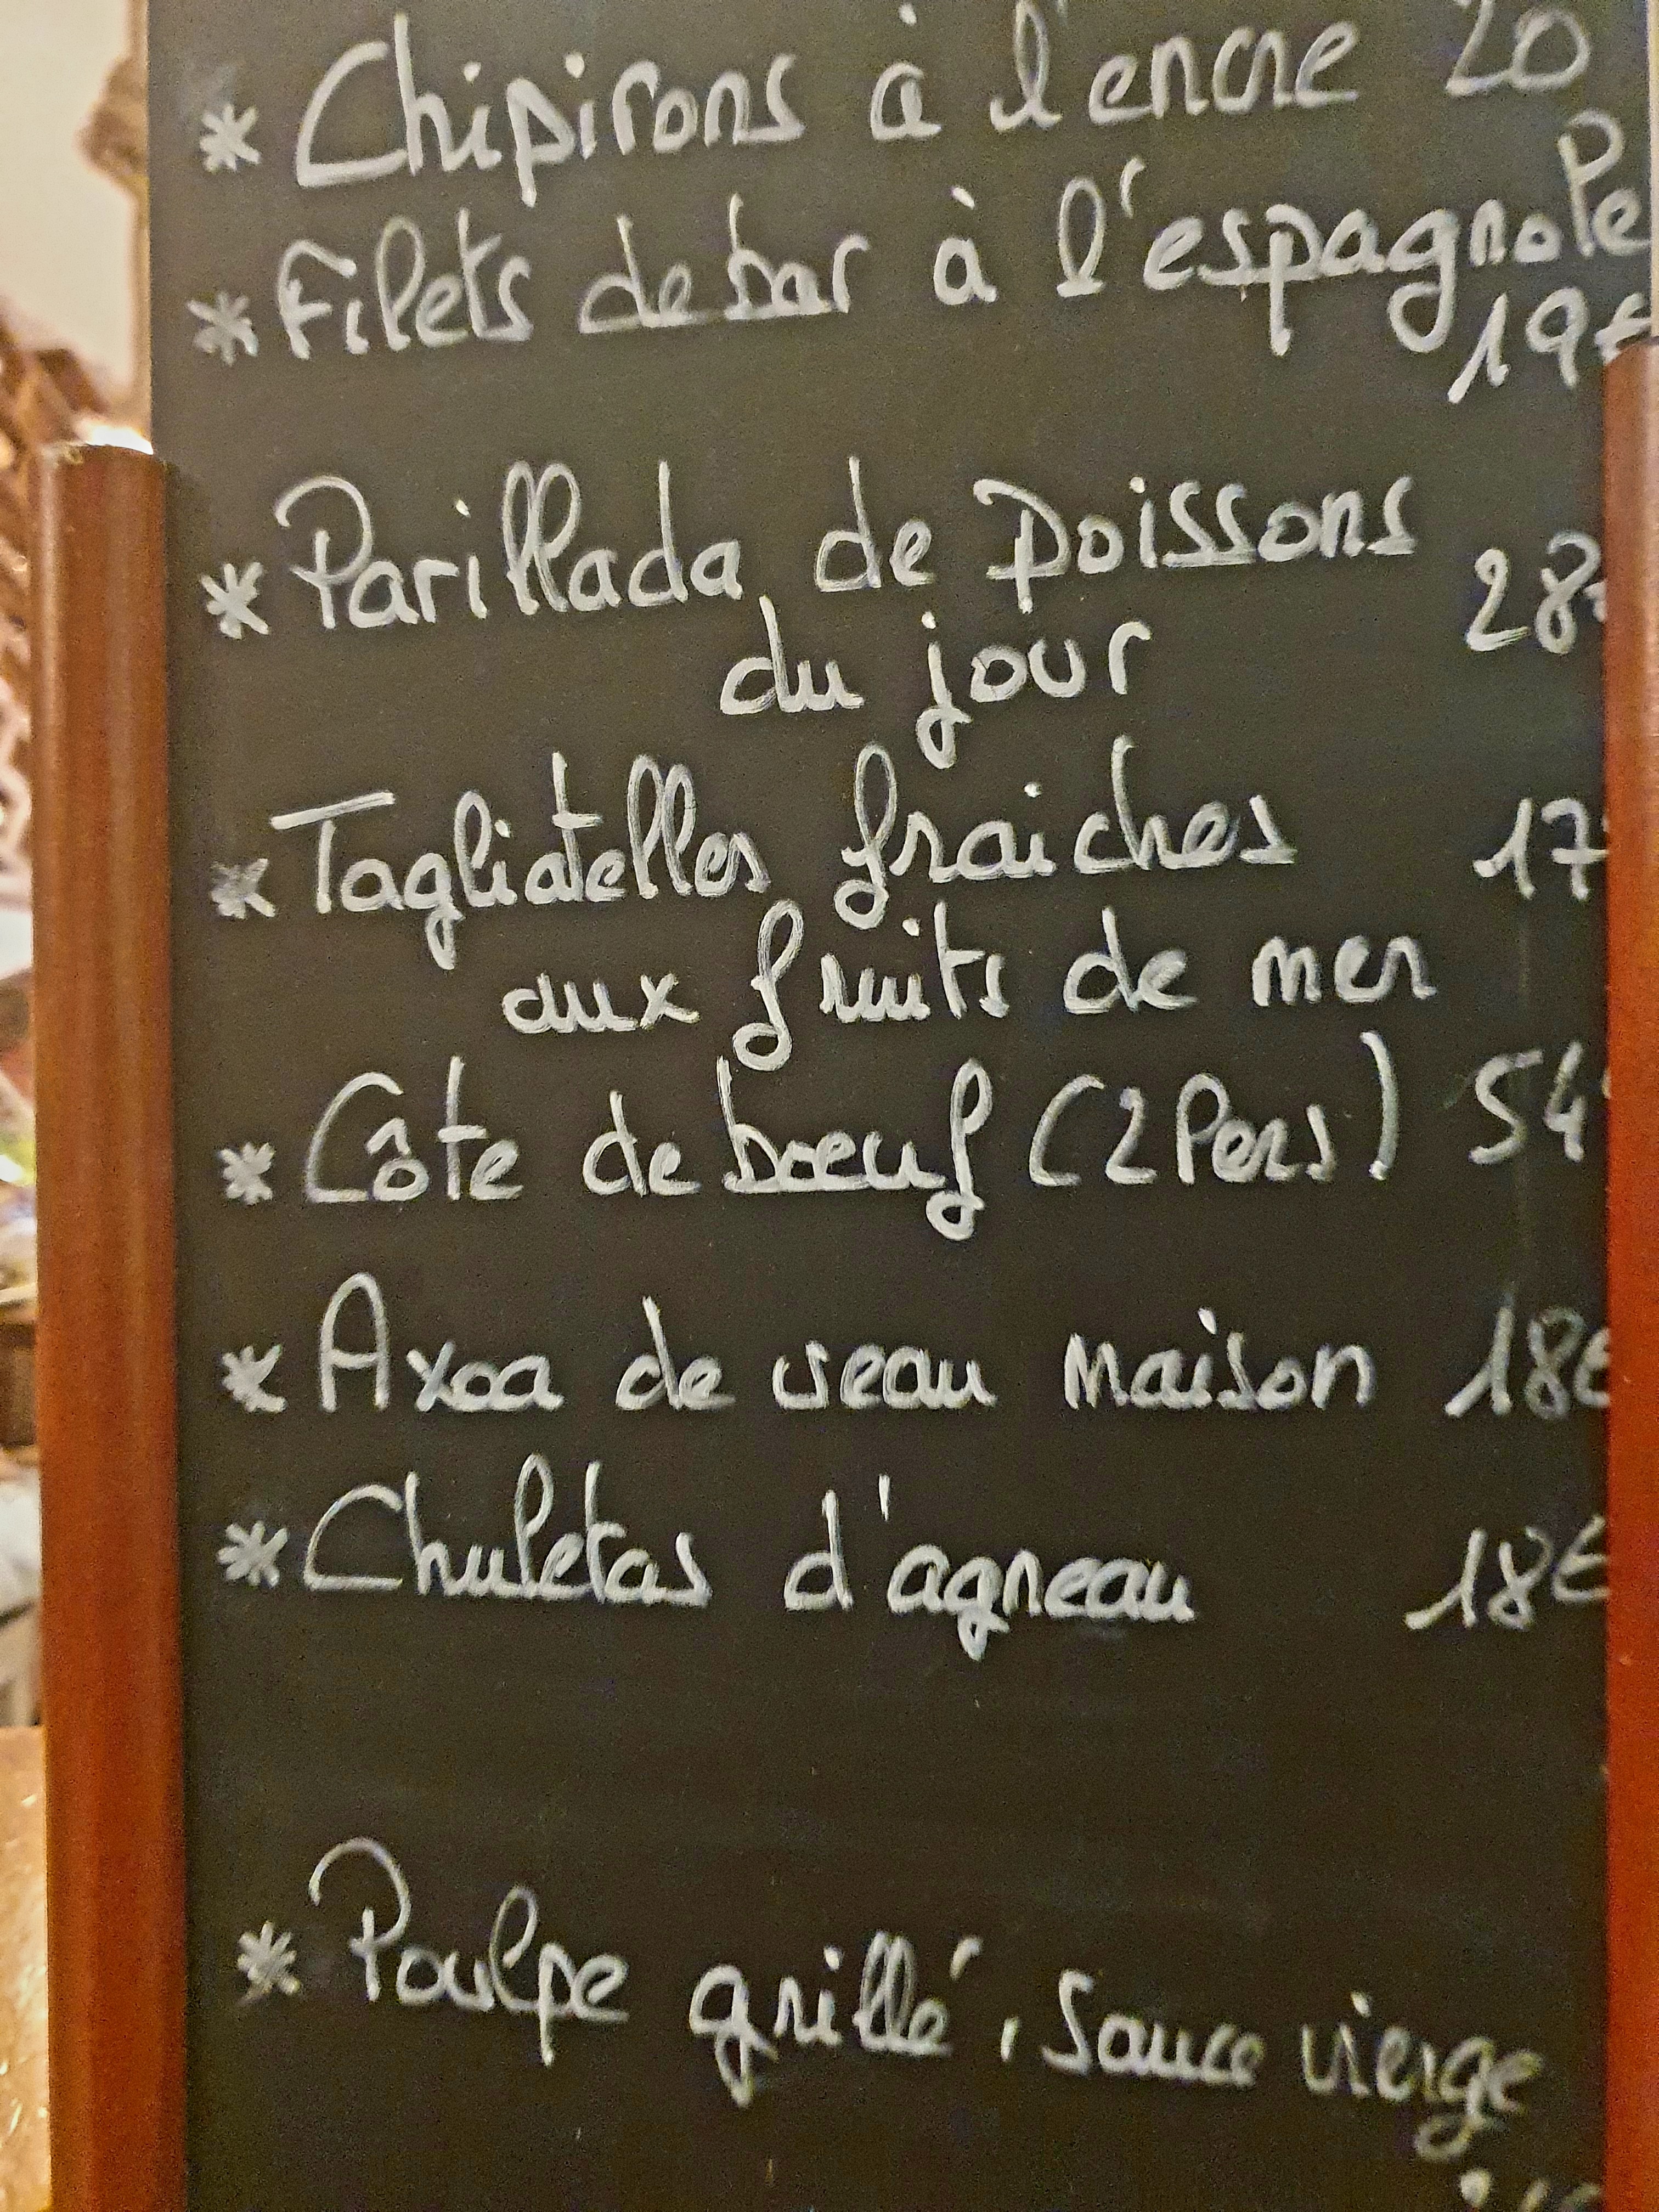 * Chipirons à l'encre 20
* Filets de bar à l'espagnole
19€
* Parillada de poissons 28
du jour
* Tagliatelles fraiches 17
aux fruits de mer
* Côte de boeuf (2 Pers) 54
* Axoa de veau Maison 18€
* Chuletas d'agneau 18€
* Poulpe grillé, sauce vierge